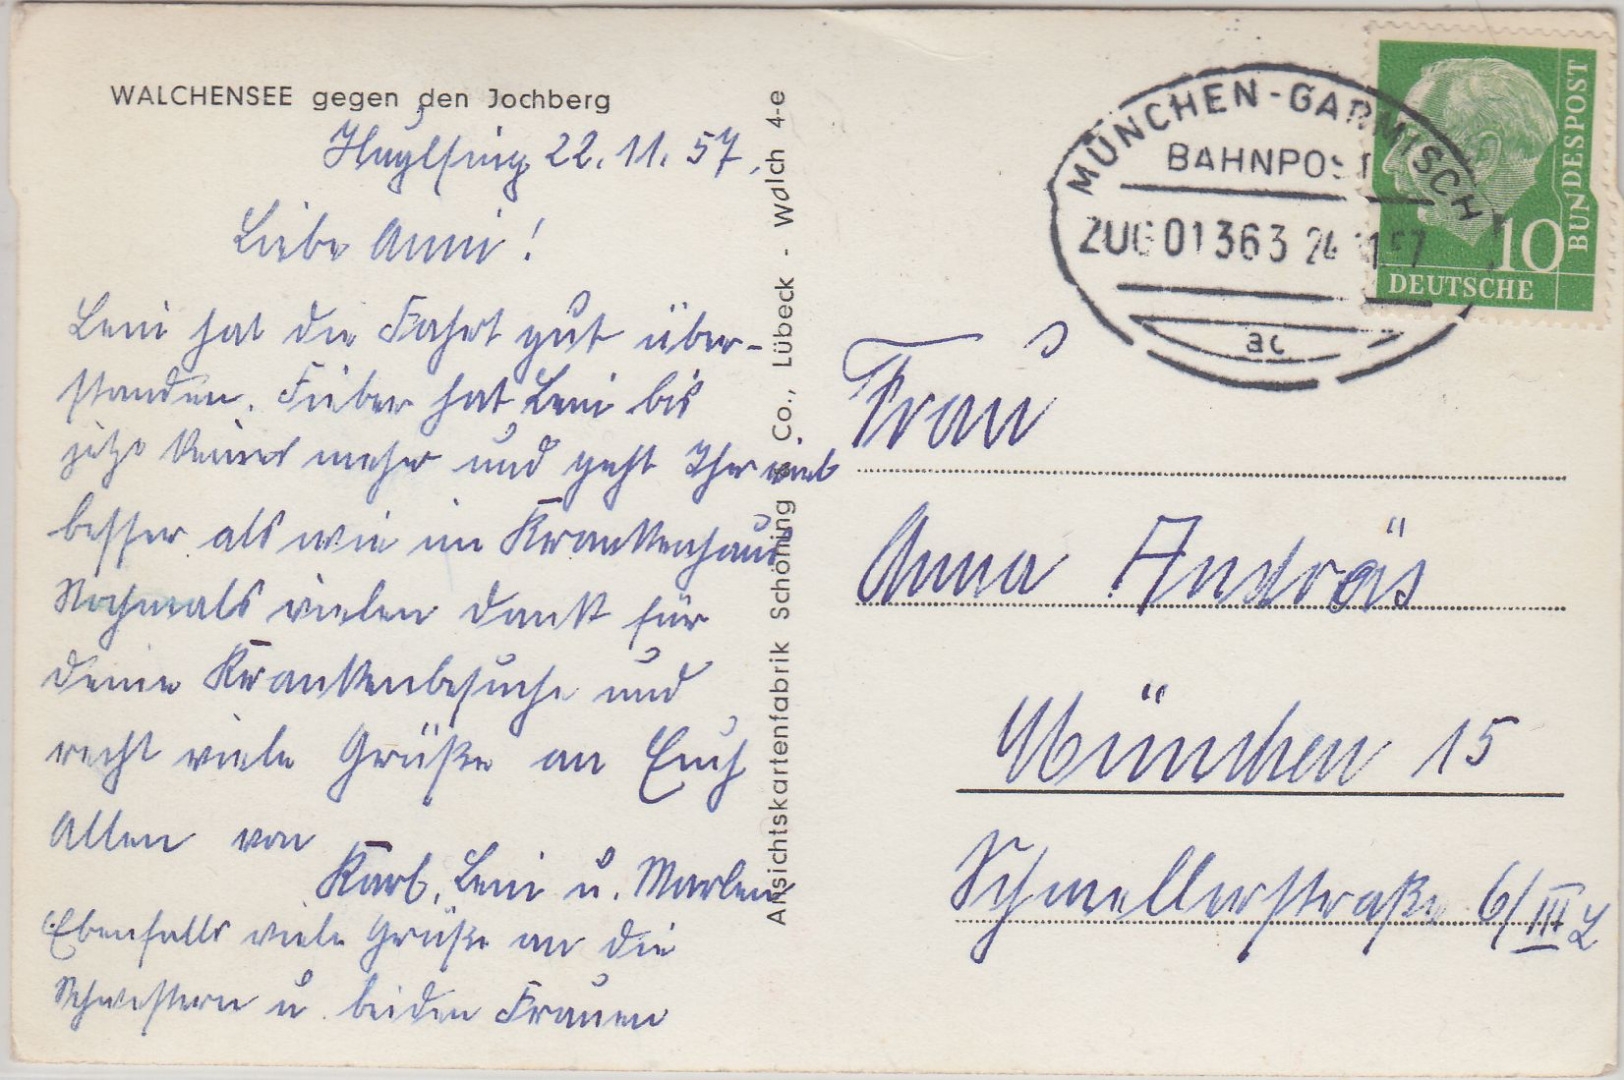 WALCHENSEE gegen den Jochberg
Huglfing 22. 11. 57.
Liebe Anni!
Leni hat die Fahrt gut über-
standen. Fieber hat Leni bis
jetzt keines mehr und geht Ihr viel
besser als wie im Krankenhaus
Nochmals vielen Dank für
deine Krankenbesuche und
recht viele Grüße an Euch
Allen von
Karl, Leni u. Marlen
Ebenfalls viele Grüße an die
Schwestern u. beiden Frauen
Ansichtskartenfabrik Schöning & Co., Lübeck - Walch 4-e
MÜNCHEN-GARMISCH
BAHNPOST
ZUG 01363 24.11.57
ac
10
DEUTSCHE
BUNDESPOST
Frau
Anna Andräs
München 15
Schmellerstraße 6/III L